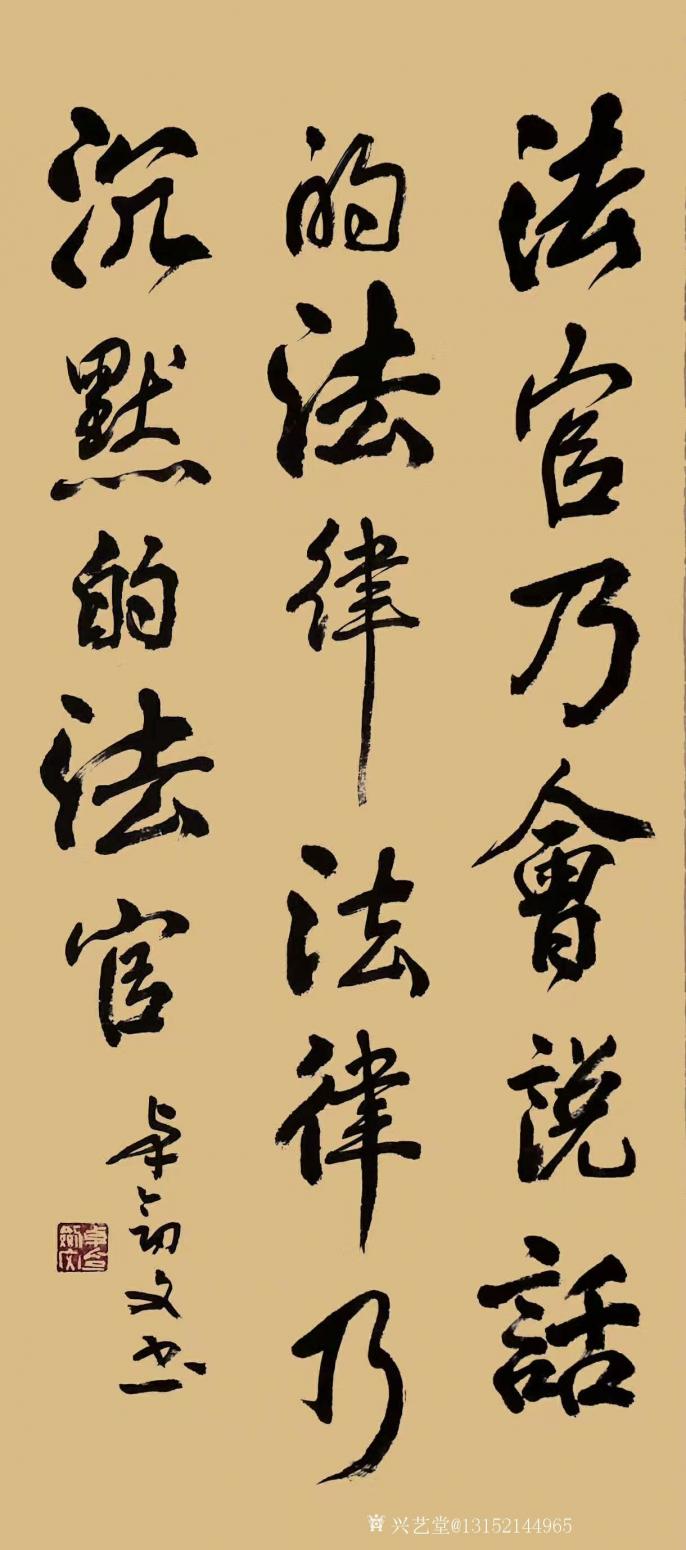 法官乃會説話
的法律法律乃
沉默的法官
文书
兴艺堂@13152144965